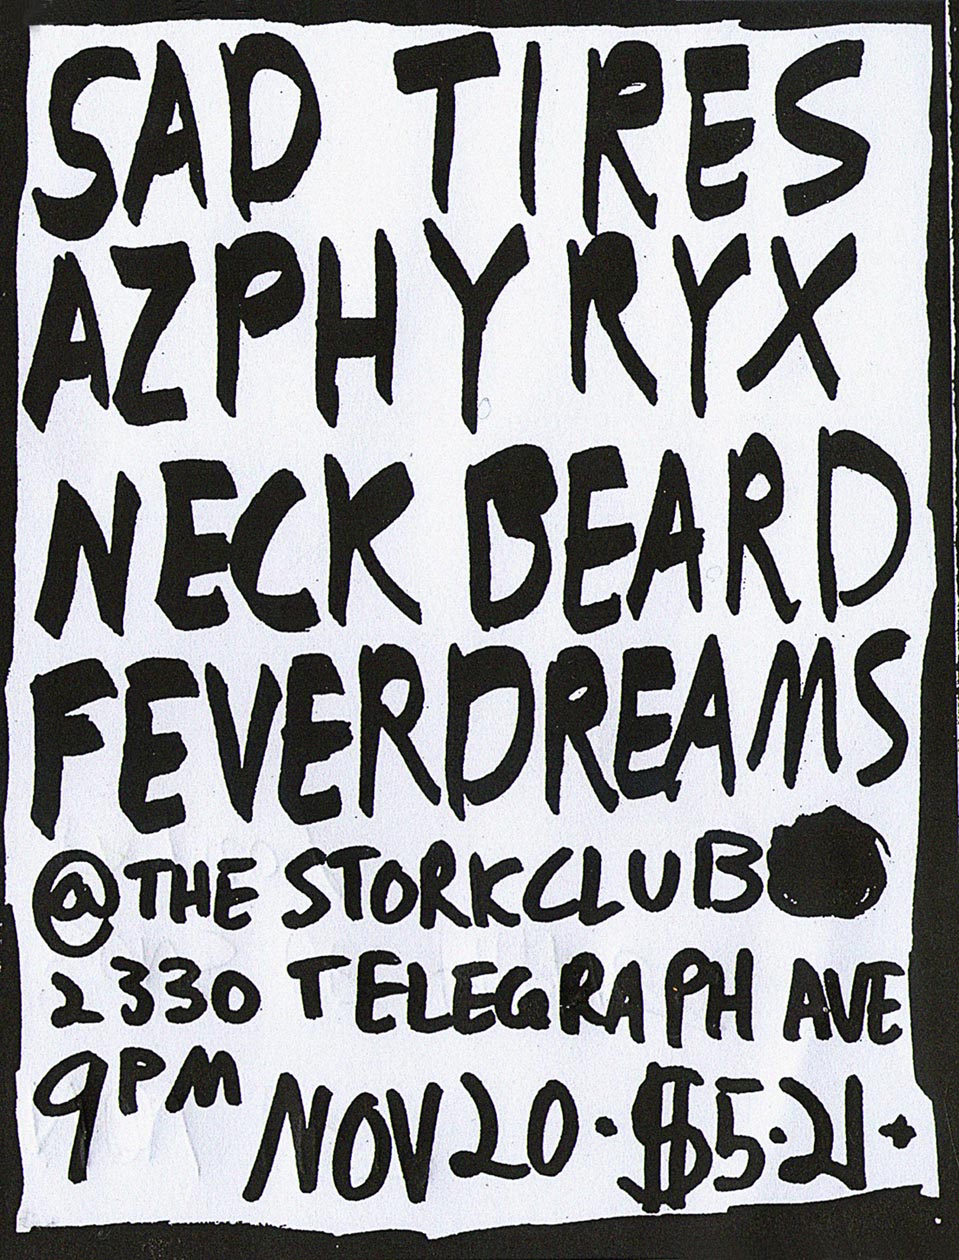 SAD TIRES
AZPHYRYX
NECK BEARD
FEVERDREAMS
@THE STORKCLUB
2330 TELEGRAPH AVE
9PM NOV 20 · $5 · 21 +